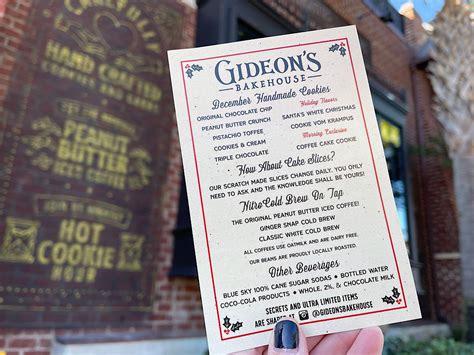 CAREFULLY
HAND CRAFTED
PEANUT
BUTTER
HOT
COOKIE
GIDEON'S
BAKEHOUSE
December Handmade Cookies
ORIGINAL CHOCOLATE CHIP
PEANUT BUTTER CRUNCH
PISTACHIO TOFFEE
COOKIES & CREAM
TRIPLE CHOCOLATE
Holiday Flavors
SANTA'S WHITE CHRISTMAS
COOKIE VOM KRAMPUS
Morning Exclusive
COFFEE CAKE COOKIE
How About Cake Slices?
OUR SCRATCH MADE SLICES CHANGE DAILY. YOU ONLY
NEED TO ASK AND THE KNOWLEDGE SHALL BE YOURS!
NitroCold Brew On Tap
THE ORIGINAL PEANUT BUTTER ICED COFFEE!
GINGER SNAP COLD BREW
CLASSIC WHITE COLD BREW
ALL COFFEES USE OATMILK AND ARE DAIRY FREE.
OUR BEANS ARE PROUDLY LOCALLY ROASTED.
Other Beverages
BLUE SKY 100% CANE SUGAR SODAS • BOTTLED WATER
COCA-COLA PRODUCTS • WHOLE, 2%, & CHOCOLATE MILK
SECRETS AND ULTRA LIMITED ITEMS
ARE SHARED AT @GIDEONSBAKEHOUSE